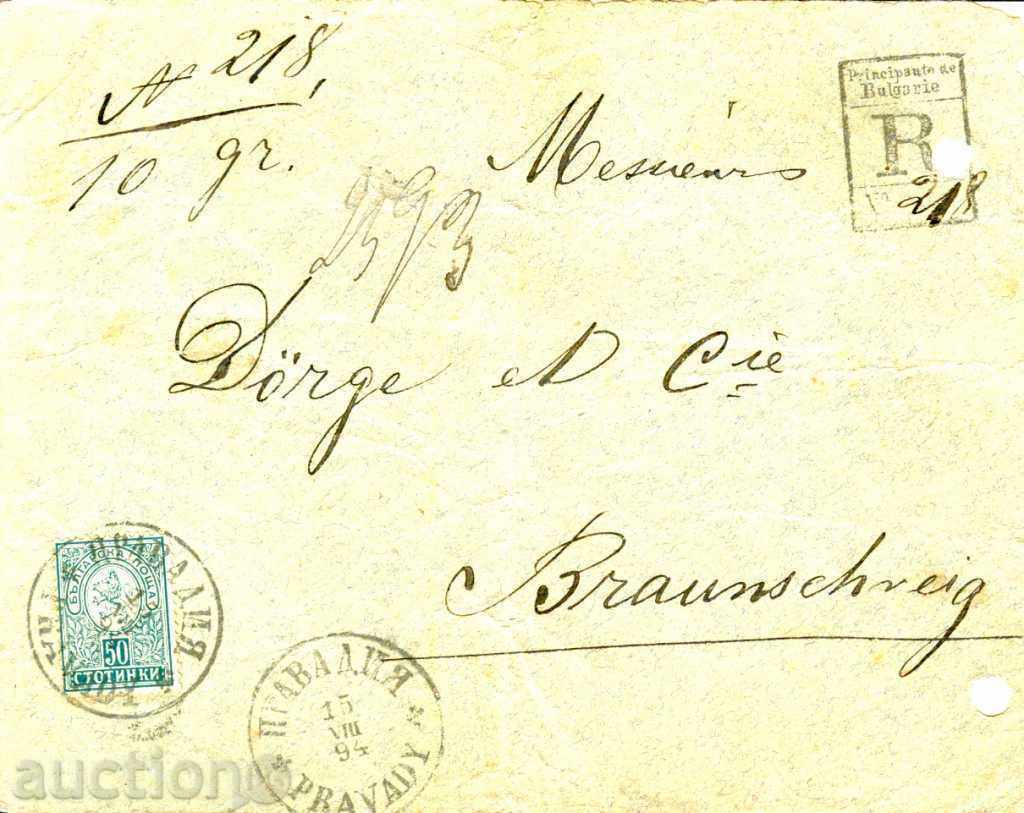 N 218,
10 gr.
Principauté de
Bulgarie
R
Nº 218
Messieurs
Dörge et Cie
Braunschweig
БЪЛГАРСКА ПОЩА
50
СТОТИНКИ
ПРАВАДИЯ
ПРАВАДИЯ
15
VIII
94
PRAVADY
auction